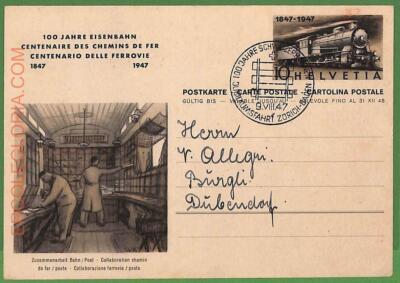 100 JAHRE EISENBAHN
CENTENAIRE DES CHEMINS DE FER
CENTENARIO DELLE FERROVIE
1847 1947
1847-1947
10 HELVETIA
100 JAHRE SCHWEIZ
JUBILÄUMSFAHRT ZÜRICH-BADEN
9.VIII.47
POSTKARTE CARTE POSTALE CARTOLINA POSTALE
GÜLTIG BIS - VALABLE JUSQU'AU - VALEVOLE FINO AL 31 XII 48
Herrn
V. Allegri.
Bürgli
Dübendorf
Zusammenarbeit Bahn/Post - Collaboration chemin
de fer/poste - Collaborazione ferrovia/posta